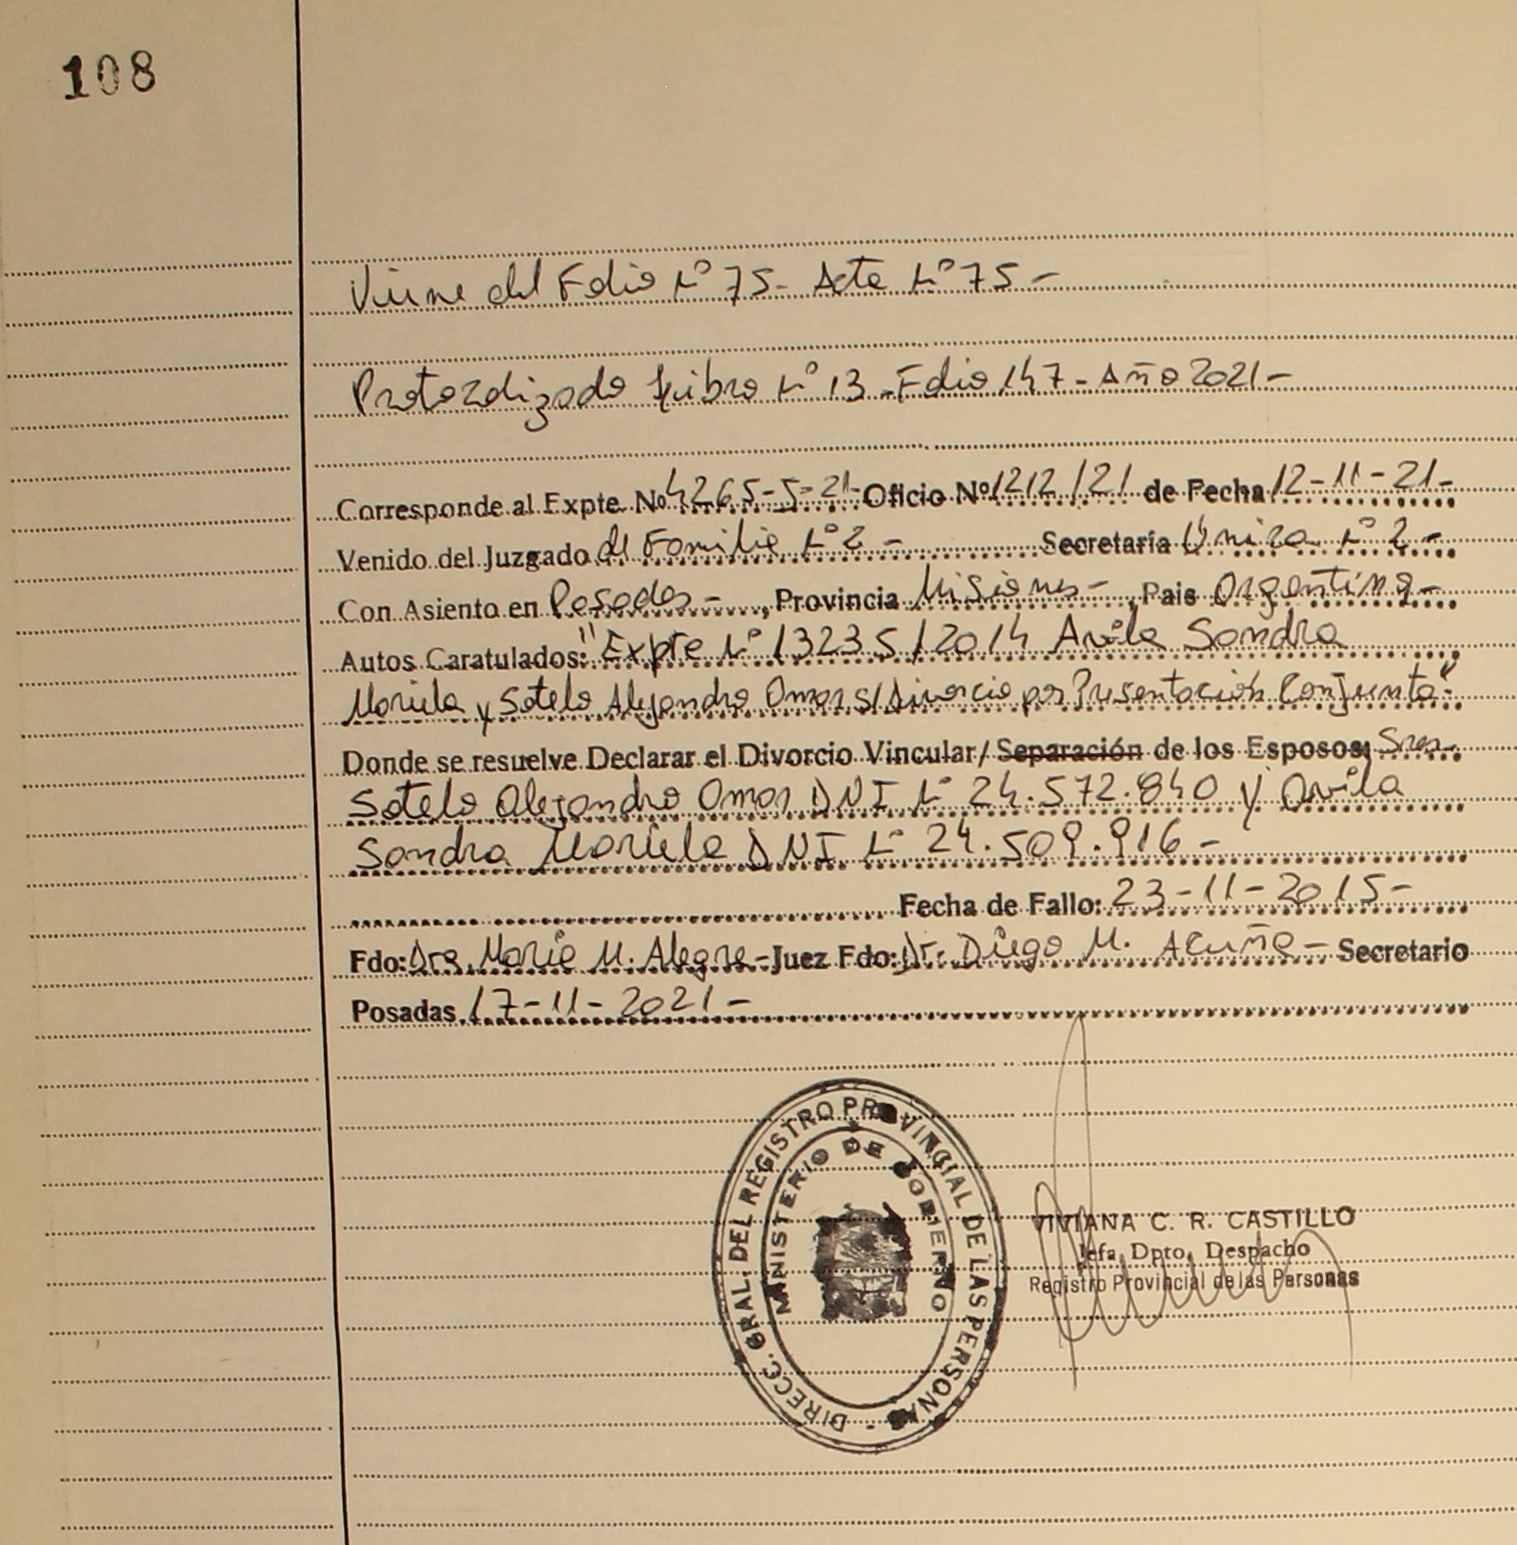 108
Viene del Folio N° 75- Acta N° 75-
Protocolizado Libro N° 13-Folio 147-Año 2021-
Corresponde al Expte. Nº 4265-S-21-Oficio Nº 1212/21 de Fecha 12-11-21-
Venido del Juzgado de Familia N° 2- Secretaría Única N° 2-
Con Asiento en Posadas-, Provincia Misiones-, Pais Argentina-
Autos Caratulados: "Expte N° 13235/2014 Avila Sandra
Mariela y Sotelo Alejandro Omar S/Divorcio por Presentación Conjunta"-
Donde se resuelve Declarar el Divorcio Vincular/ Separación de los Esposos: Sres.
Sotelo Alejandro Omar DNI N° 24.572.840 y Avila
Sandra Mariela DNI N° 24.509.916-
Fecha de Fallo: 23-11-2015-
Fdo: Dra. Maria M. Alegre-Juez Fdo: Dr. Diego M. Acuña- Secretario
Posadas, 17-11-2021-
DIRECC. GRAL. DEL REGISTRO PROVINCIAL DE LAS PERSONAS -
MINISTERIO DE GOBIERNO
VIVIANA C. R. CASTILLO
Jefa Dpto. Despacho
Registro Provincial de las Personas